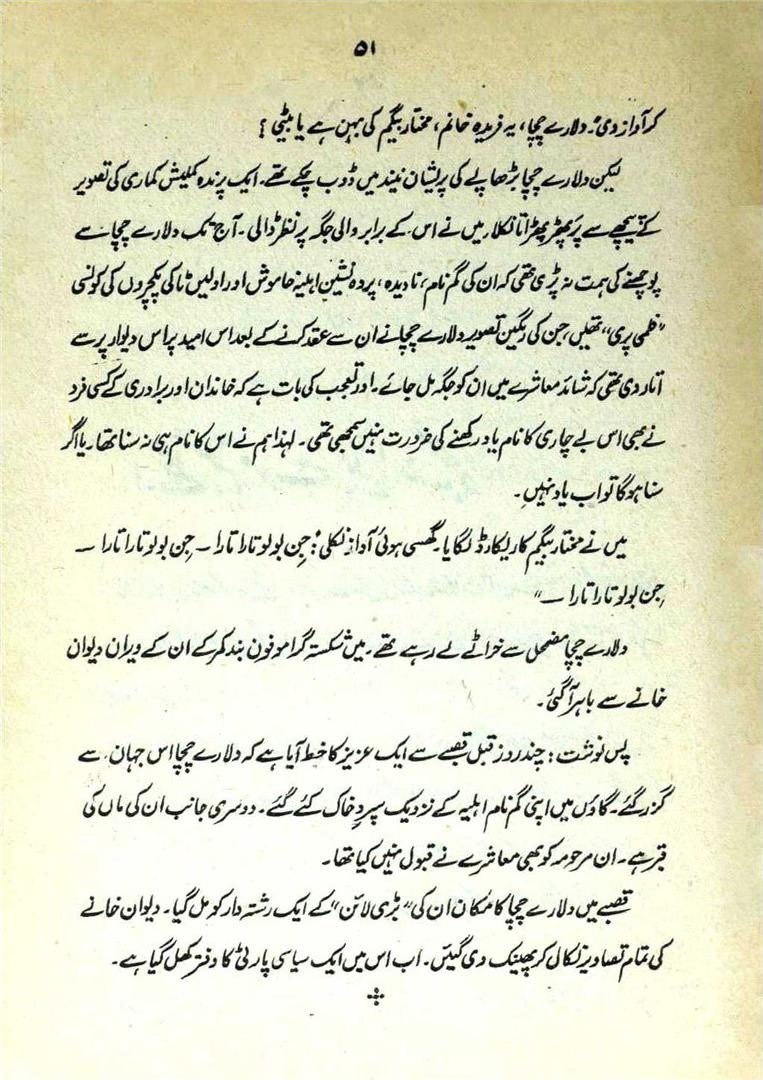 ۵۱
کر آواز دی: "دلارے چچا، یہ فریدہ خانم، مختار بیگم کی بہن ہے یا بیٹی؟
لیکن دلارے چچا بڑھاپے کی پریشان نیند میں ڈوب چکے تھے۔ ایک پرندہ کملیش کماری کی تصویر
کے پیچھے سے پَر پھڑپھڑاتا نکلا۔ میں نے اس کے برابر والی جگہ پر نظر ڈالی۔ آج تک دلارے چچا سے
پوچھنے کی ہمت نہ پڑی تھی کہ ان کی گم نام، نادیدہ، پردہ نشین اہلیہ خاموش اور اولیں ٹاکی پکچروں کی کونسی
"فلمی پری" تھیں، جن کی رنگین تصویر دلارے چچا نے ان سے عقد کرنے کے بعد اس امید پر اس دیوار پر سے
اتار دی تھی کہ شائد معاشرے میں ان کو جگہ مل جائے۔ اور تعجب کی بات ہے کہ خاندان اور برادری کے کسی فرد
نے بھی اس بے چاری کا نام یاد رکھنے کی ضرورت نہیں سمجھی تھی۔ لہٰذا ہم نے اس کا نام ہی نہ سنا تھا۔ یا اگر
سنا ہوگا تو اب یاد نہیں۔
میں نے مختار بیگم کا ریکارڈ لگایا۔ گھسی ہوئی آواز نکلی: "جِن بولو تارا تارا — جِن بولو تارا تارا —
جِن بولو تارا تارا —"
دلارے چچا مضمحل سے خراٹے لے رہے تھے۔ میں شکستہ گراموفون بند کر کے ان کے ویران دیوان
خانے سے باہر آگئی۔
پس نوشت: چند روز قبل قصبے سے ایک عزیز کا خط آیا ہے کہ دلارے چچا اس جہان سے
گزر گئے۔ گاؤں میں اپنی گم نام اہلیہ کے نزدیک سپردِ خاک کئے گئے۔ دوسری جانب ان کی ماں کی
قبر ہے۔ ان مرحومہ کو بھی معاشرے نے قبول نہیں کیا تھا۔
قصبے میں دلارے چچا کا مکان ان کی "بڑی لائن" کے ایک رشتہ دار کو مل گیا۔ دیوان خانے
کی تمام تصاویر نکال کر پھینک دی گئیں۔ اب اس میں ایک سیاسی پارٹی کا دفتر کھل گیا ہے۔